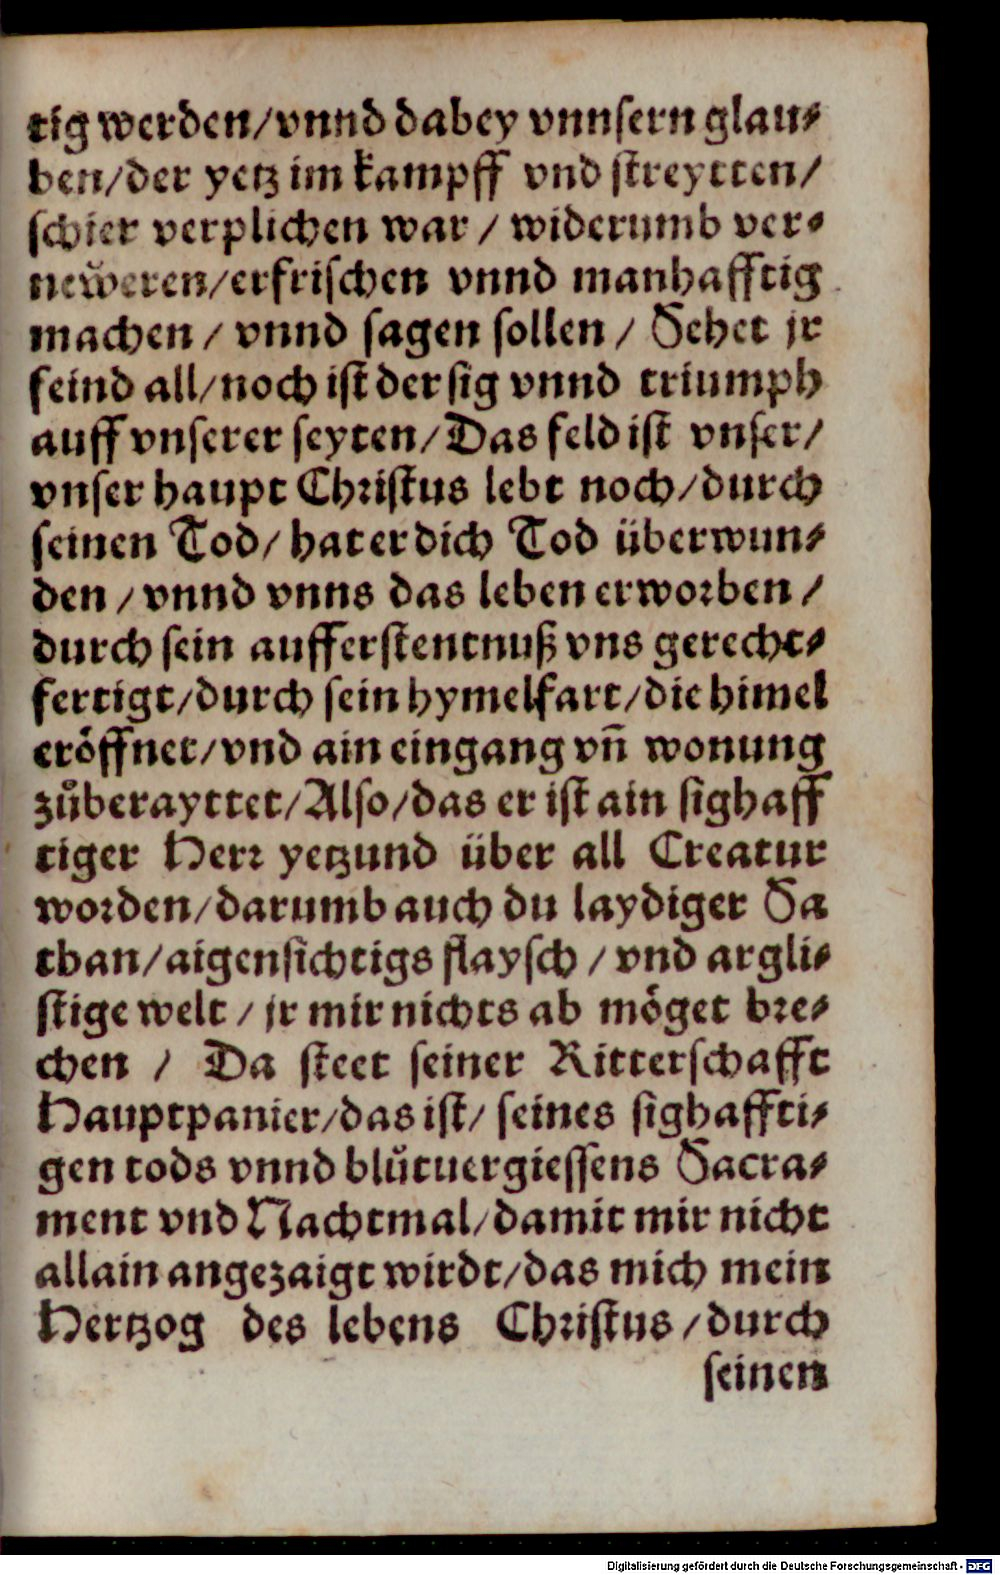 tig werden/vnnd dabey vnnſern glau⸗
ben/der yetz im kampff vnd ſtreytten/
ſchier verplichen war / widerumb ver⸗
neẅeren/erfriſchen vnnd manhafftig
machen / vnnd ſagen ſollen / Sehet jr
feind all/noch iſt der ſig vnnd triumph
auff vnſerer ſeyten/Das feld iſt vnſer/
vnſer haupt Chꝛiſtus lebt noch/durch
ſeinen Tod/ hat er dich Tod überwun⸗
den / vnnd vnns das leben erwoꝛben /
durch ſein aufferſtentnuß vns gerecht⸗
fertigt/durch ſein hymelfart/die himel
eröffnet/vnd ain eingang vñ wonung
zůberayttet/Alſo/das er iſt ain ſighaff
tiger Herꝛ yetzund über all Creatur
woꝛden/darumb auch du laydiger Sa
than/aigenſichtigs flayſch / vnd argli⸗
ſtige welt / jr mir nichts ab möget bꝛe⸗
chen / Da ſteet ſeiner Ritterſchafft
Hauptpanier/das iſt/ ſeines ſighaffti⸗
gen tods vnnd blůtuergieſſens Sacra⸗
ment vnd Nachtmal/damit mir nicht
allain angezaigt wirdt/das mich mein
Hertzog des lebens Chꝛiſtus /durch
ſeinen
Digitalisierung gefördert durch die Deutsche Forschungsgemeinschaft - DFG